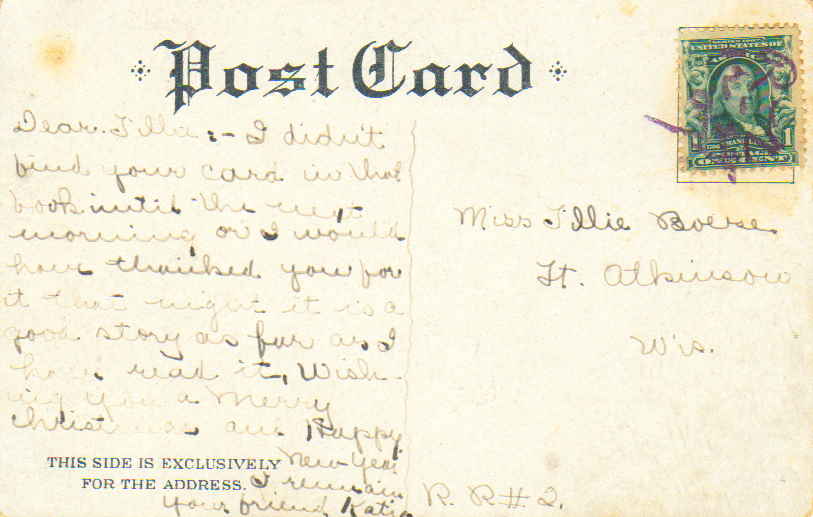 Post Card
UNITED STATES OF
AMERICA
1 1
ONE CENT
Dear Tillie :- I didn't
find your card in that
book until the next
morning or I would
have thanked you for
it that night it is a
good story as far as I
have read it, Wish-
ing you a Merry
Christmas and Happy
New Year
I remain
your friend Katie
THIS SIDE IS EXCLUSIVELY
FOR THE ADDRESS.
Miss Tillie Boese
Ft. Atkinson
Wis.
R. R # 2.